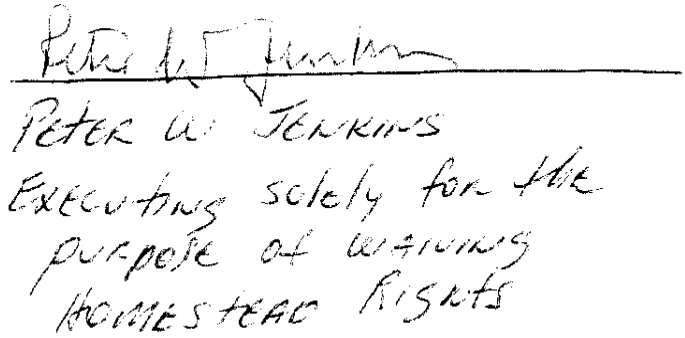 Peter W Jenkins
PETER W JENKINS
EXECUTING solely for the
purpose of WAIVING
HOMESTEAD RIGHTS